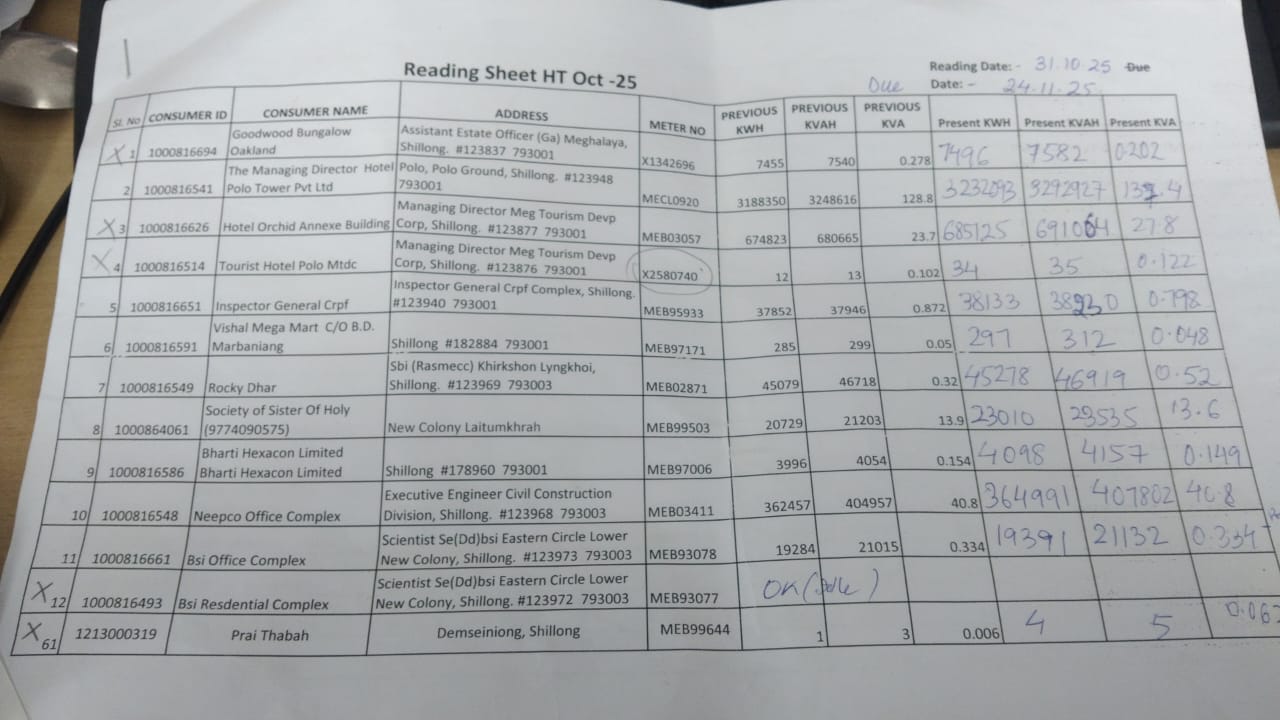 Reading Sheet HT Oct -25
Reading Date: - 31.10.25 Due
Due Date: - 24.11.25
Sl. No CONSUMER ID CONSUMER NAME ADDRESS METER NO PREVIOUS KWH PREVIOUS KVAH PREVIOUS KVA Present KWH Present KVAH Present KVA
X 1 1000816694 Goodwood Bungalow Oakland Assistant Estate Officer (Ga) Meghalaya, Shillong. #123837 793001 X1342696 7455 7540 0.278 7496 7582 0.202
2 1000816541 The Managing Director Hotel Polo Tower Pvt Ltd Polo, Polo Ground, Shillong. #123948 793001 MECL0920 3188350 3248616 128.8 3232093 3292927
X 3 1000816626 Hotel Orchid Annexe Building Managing Director Meg Tourism Devp Corp, Shillong. #123877 793001 MEB03057 674823 680665 23.7 685125 691064 27.8
X 4 1000816514 Tourist Hotel Polo Mtdc Managing Director Meg Tourism Devp Corp, Shillong. #123876 793001 X2580740 12 13 0.102 34 35 0.122
5 1000816651 Inspector General Crpf Inspector General Crpf Complex, Shillong. #123940 793001 MEB95933 37852 37946 0.872 38133 38230 0.798
6 1000816591 Vishal Mega Mart C/O B.D. Marbaniang Shillong #182884 793001 MEB97171 285 299 0.05 297 312 0.048
7 1000816549 Rocky Dhar Sbi (Rasmecc) Khirkshon Lyngkhoi, Shillong. #123969 793003 MEB02871 45079 46718 0.32 45278 46919 0.52
8 1000864061 Society of Sister Of Holy (9774090575) New Colony Laitumkhrah MEB99503 20729 21203 13.9 23010 23535 13.6
9 1000816586 Bharti Hexacon Limited Bharti Hexacon Limited Shillong #178960 793001 MEB97006 3996 4054 0.154 4098 4157 0.149
10 1000816548 Neepco Office Complex Executive Engineer Civil Construction Division, Shillong. #123968 793003 MEB03411 362457 404957 40.8 364991 407802 40.8
11 1000816661 Bsi Office Complex Scientist Se(Dd)bsi Eastern Circle Lower New Colony, Shillong. #123973 793003 MEB93078 19284 21015 0.334 19391 21132 0.334
X 12 1000816493 Bsi Resdential Complex Scientist Se(Dd)bsi Eastern Circle Lower New Colony, Shillong. #123972 793003 MEB93077 OK
X 61 1213000319 Prai Thabah Demseiniong, Shillong MEB99644 1 3 0.006 4 5